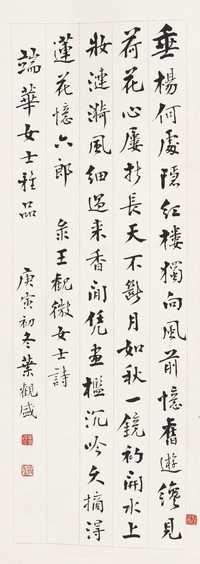 垂楊何處隱紅樓獨向風前憶舊遊纔見
荷花心屢折長天不斷月如秋一鏡初開水上
妝漣漪風細過來香閒凭畫檻沉吟久摘得
蓮花憶六郎 彔王観微女士詩
端華女士雅品
庚寅初冬葉觀盛